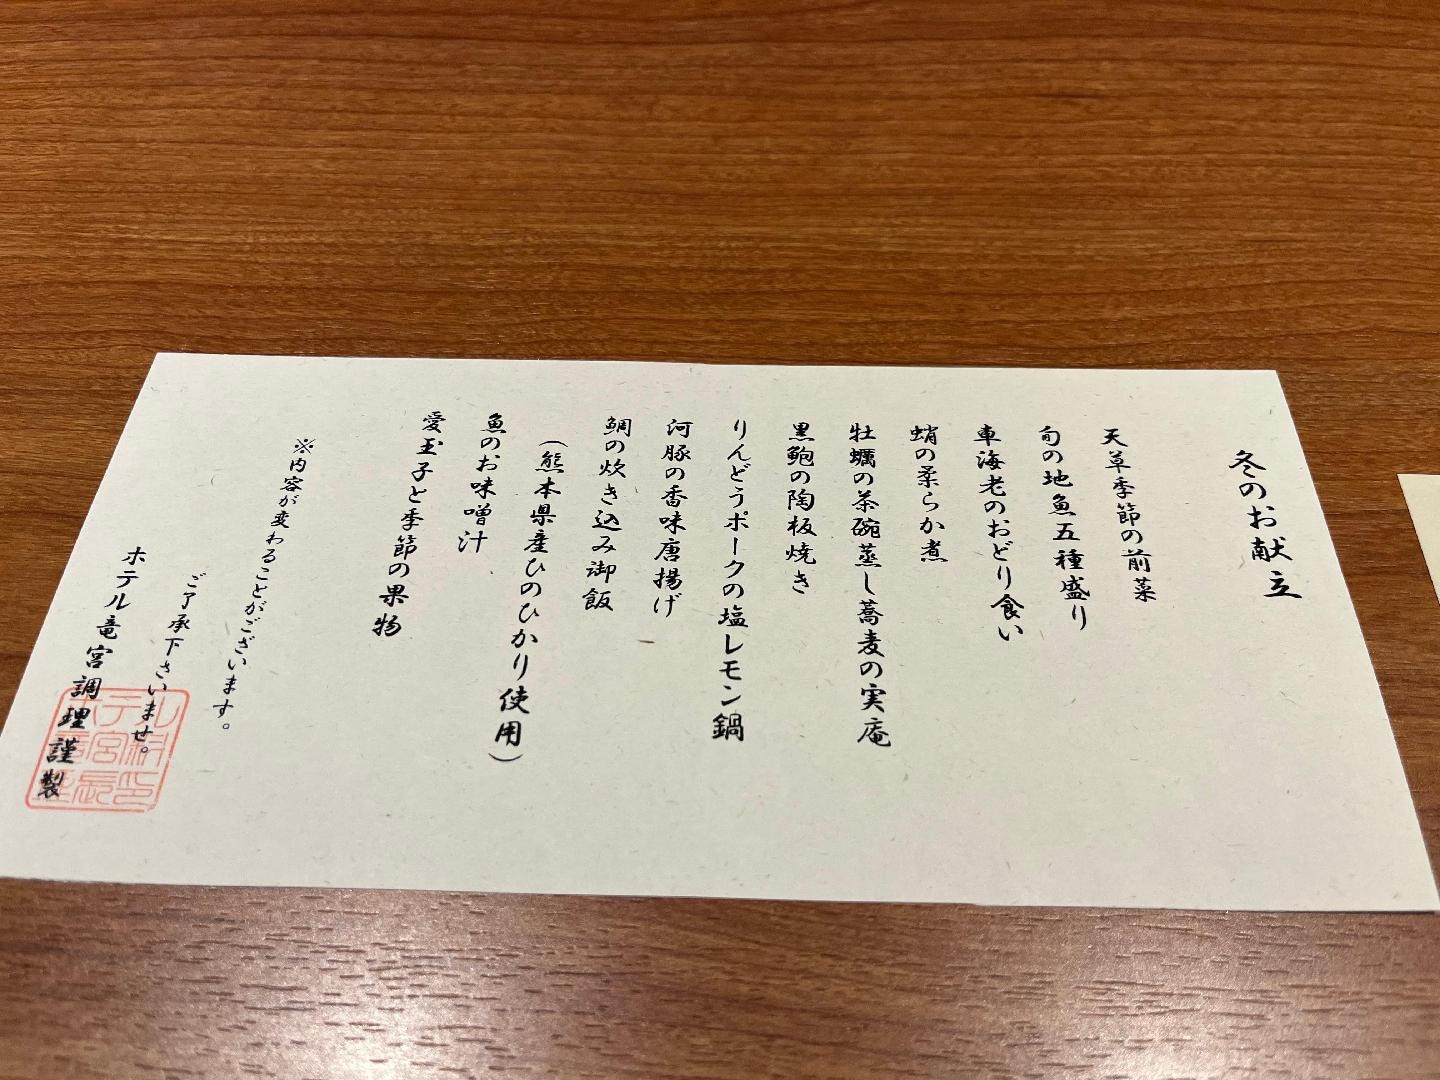 冬のお献立
天草季節の前菜
旬の地魚五種盛り
車海老のおどり食い
蛸の柔らか煮
牡蠣の茶碗蒸し蕎麦の実庵
黒鮑の陶板焼き
りんどうポークの塩レモン鍋
河豚の香味唐揚げ
鯛の炊き込み御飯
(熊本県産ひのひかり使用)
魚のお味噌汁
愛玉子と季節の果物
※内容が変わることがございます。
ご了承下さいませ。
ホテル竜宮調理謹製